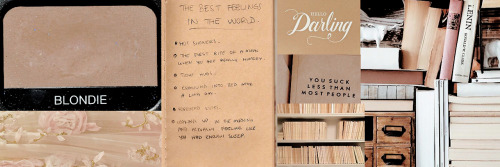 BLONDIE
THE BEST FEELINGS
IN THE WORLD.
HOT SHOWERS.
THE FIRST BITE OF A MEAL
WHEN YOU ARE REALLY HUNGRY
CRAWLING INTO BED AFTER
A LONG DAY.
WAKING UP IN THE MORNING
AND ACTUALLY FEELING LIKE
YOU HAD ENOUGH SLEEP.
HELLO
Darling
YOU SUCK
LESS THAN
MOST PEOPLE
LENIN